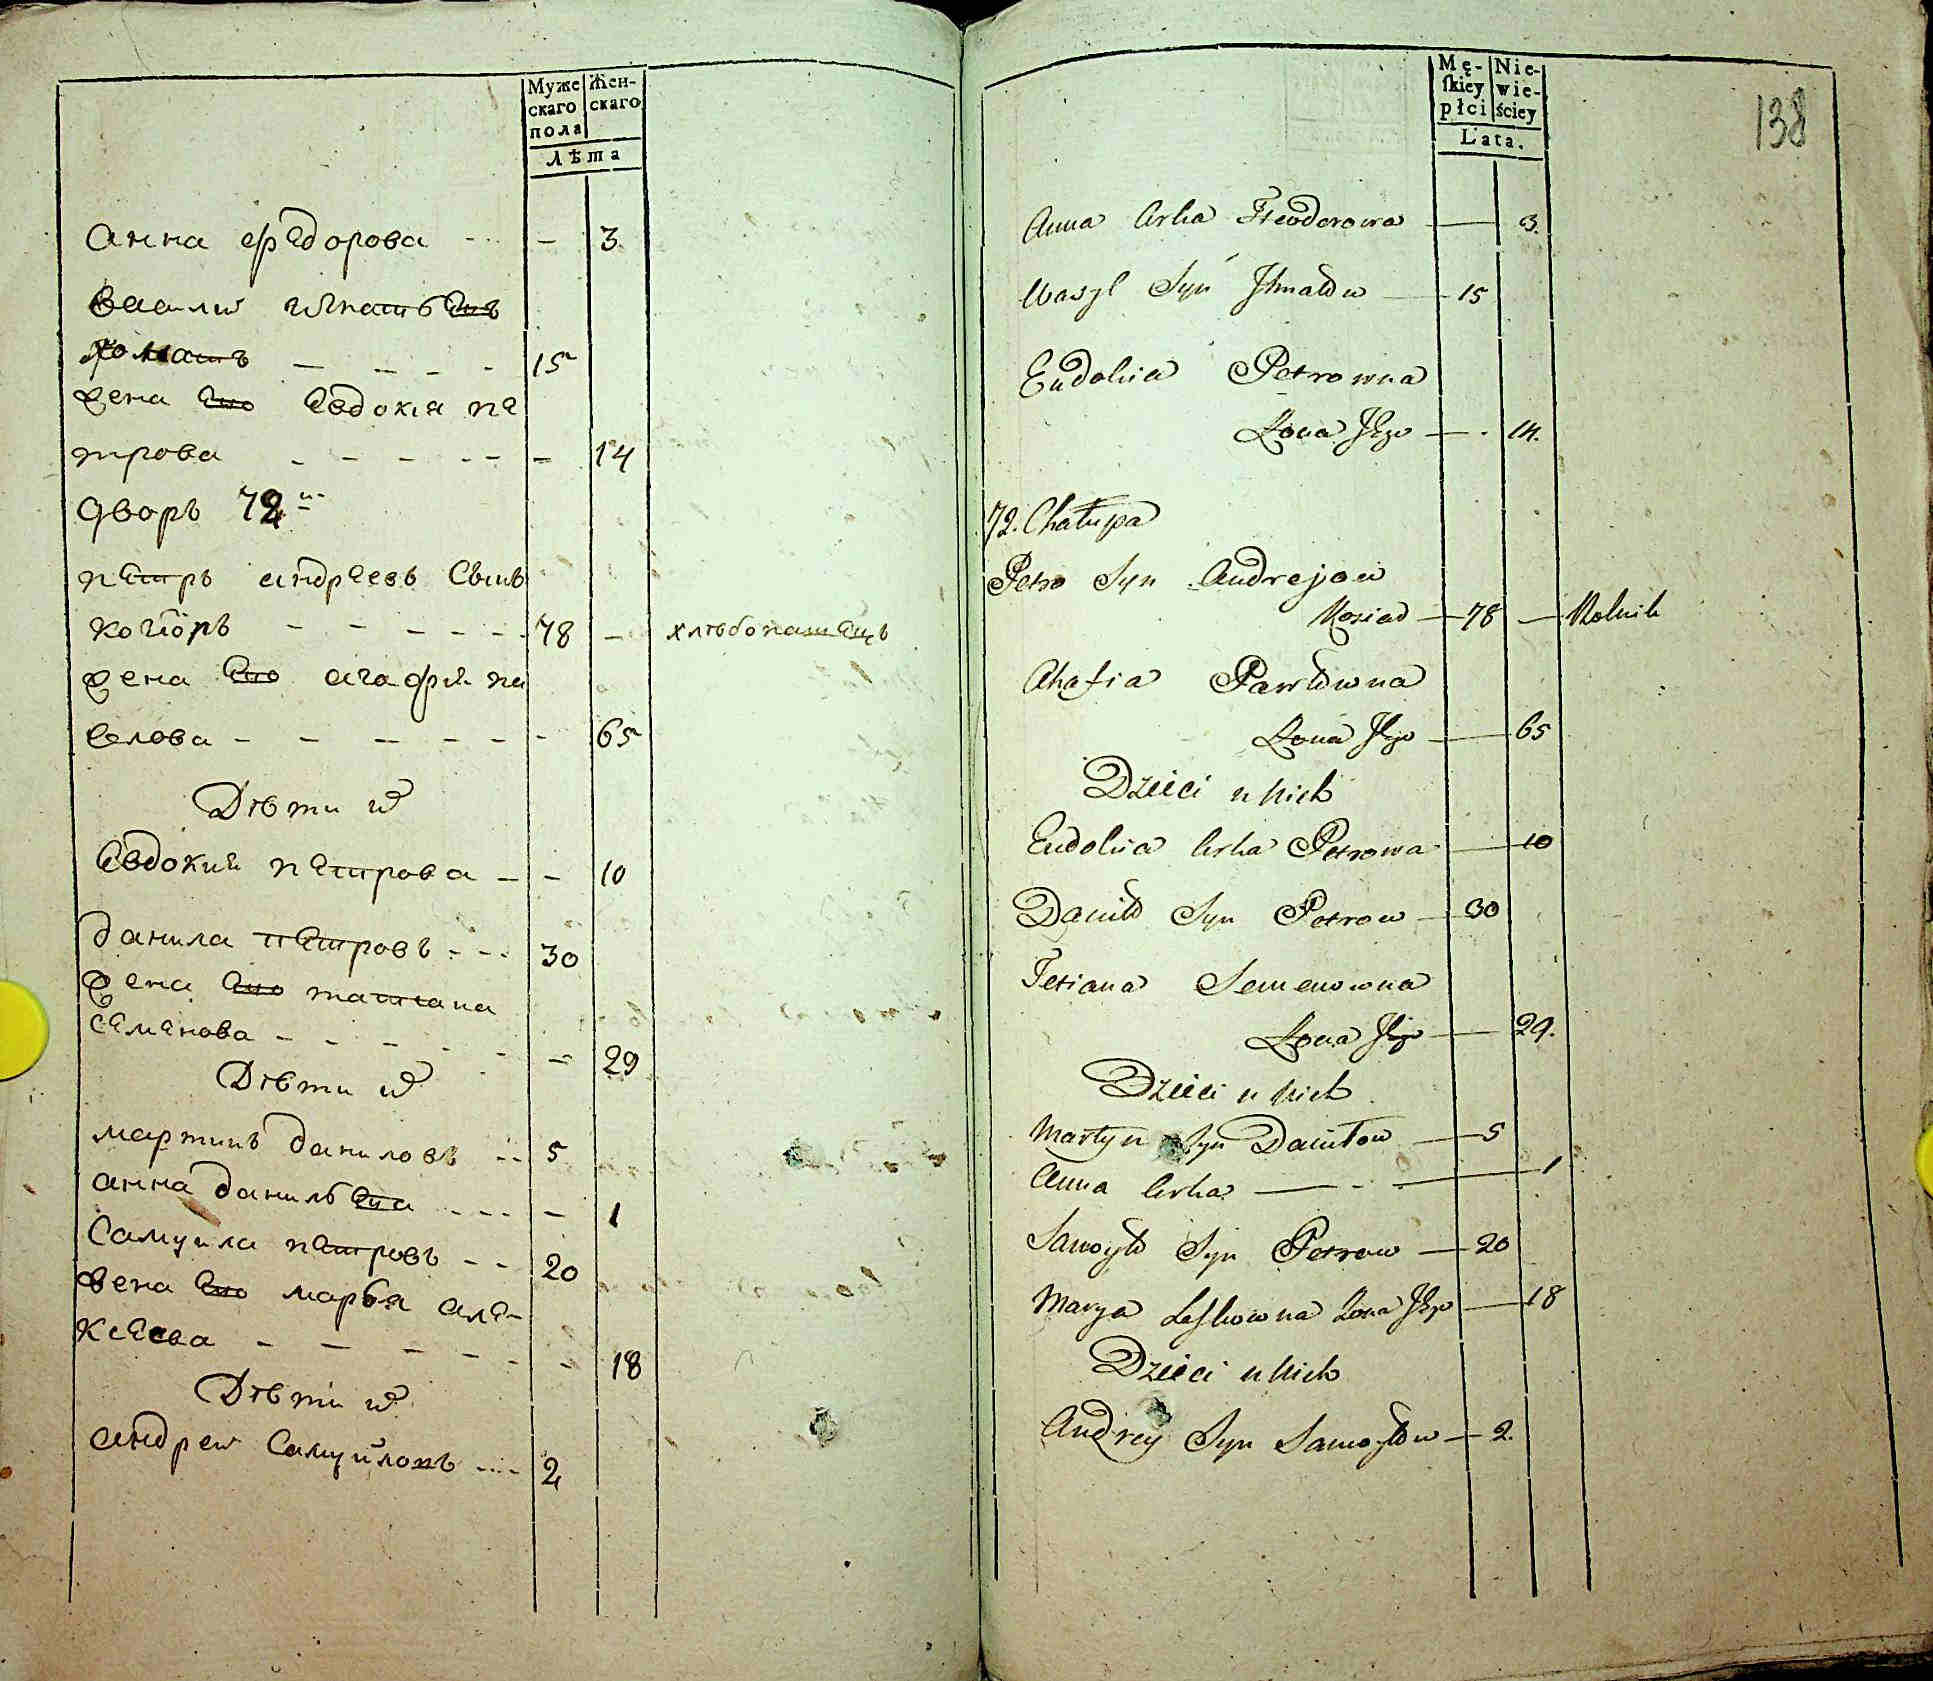 Муже
скаго
пола
Жен-
скаго
лѣта
анна федорова - 3
васили игнатьевъ
15
жена его евдокія пе
трова - 14
дворъ 72и
петръ андреевъ сынъ
78 - хлѣбопашецъ
жена его агафия па
велова - 65
Дѣти их
евдокия петрова - 10
данила петровъ 30
жена его татиана
семенова - 29
Дѣти их
мартинъ даниловъ 5
анна данильева - 1
Самуила петровъ 20
жена его марья але-
ксеева - 18
Дѣти их
андреи Самуиловъ 2
138
Mę-
skiey
płci
Nie-
wie-
ściey
Lata.
Anna Crka Fteodorowa — 3.
Wasyl Syn Ihnatow — 15
Eudokia Petrowna
Żona Jego — 14.
72. Chałupa
Petro Syn Andrejow
78 — Rolnik
Ahafia Pawłowna
Żona Jego — 65
Dzieci u nich
Eudokia Crka Petrowa — 10
Daniło Syn Petrow — 30
Tetiana Semenowna
Żona Jego — 29.
Dzieci u nich
Martyn Syn Daniłow — 5
Anna Crka — 1
Samoyło Syn Petrow — 20
Marya Leskowna Żona Jego — 18
Dzieci u nich
Andrey Syn Samoyłow — 2.